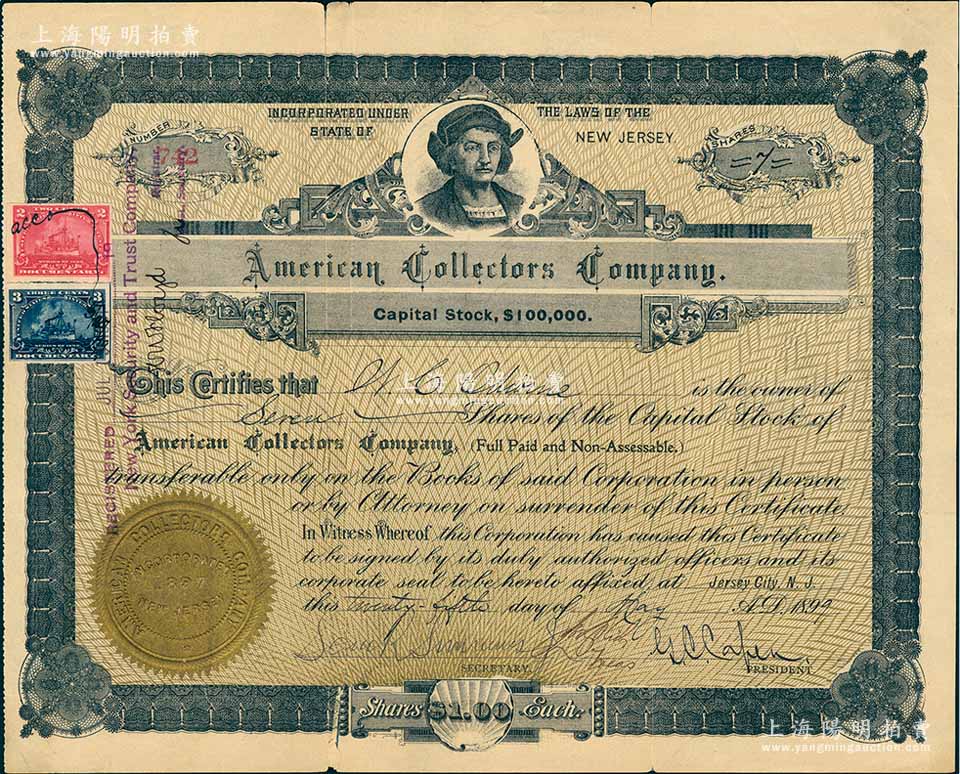 上海陽明拍賣
www.yangmingauction.com
INCORPORATED UNDER THE LAWS OF THE
STATE OF NEW JERSEY.
NUMBER
SHARES
=7=
American Collectors Company.
Capital Stock, $100,000.
2
TWO CENTS
DOCUMENTARY
3
THREE CENTS
DOCUMENTARY
REGISTERED JUL 19
New York Security and Trust Company
This Certifies that H. C. is the owner of
Seven Shares of the Capital Stock of
American Collectors Company, (Full Paid and Non-Assessable.)
transferable only on the Books of said Corporation in person
or by Attorney on surrender of this Certificate.
In Witness Whereof this Corporation has caused this Certificate
to be signed by its duly authorized officers and its
corporate seal to be hereto affixed at Jersey City, N. J.
this twenty-fifth day of May A.D. 1899
SECRETARY.
G. C. Capen
PRESIDENT.
AMERICAN COLLECTORS COMPANY
INCORPORATED
1897
NEW JERSEY
Shares $1.00 Each.
上海陽明拍賣
www.yangmingauction.com
上海陽明拍賣
www.yangmingauction.com